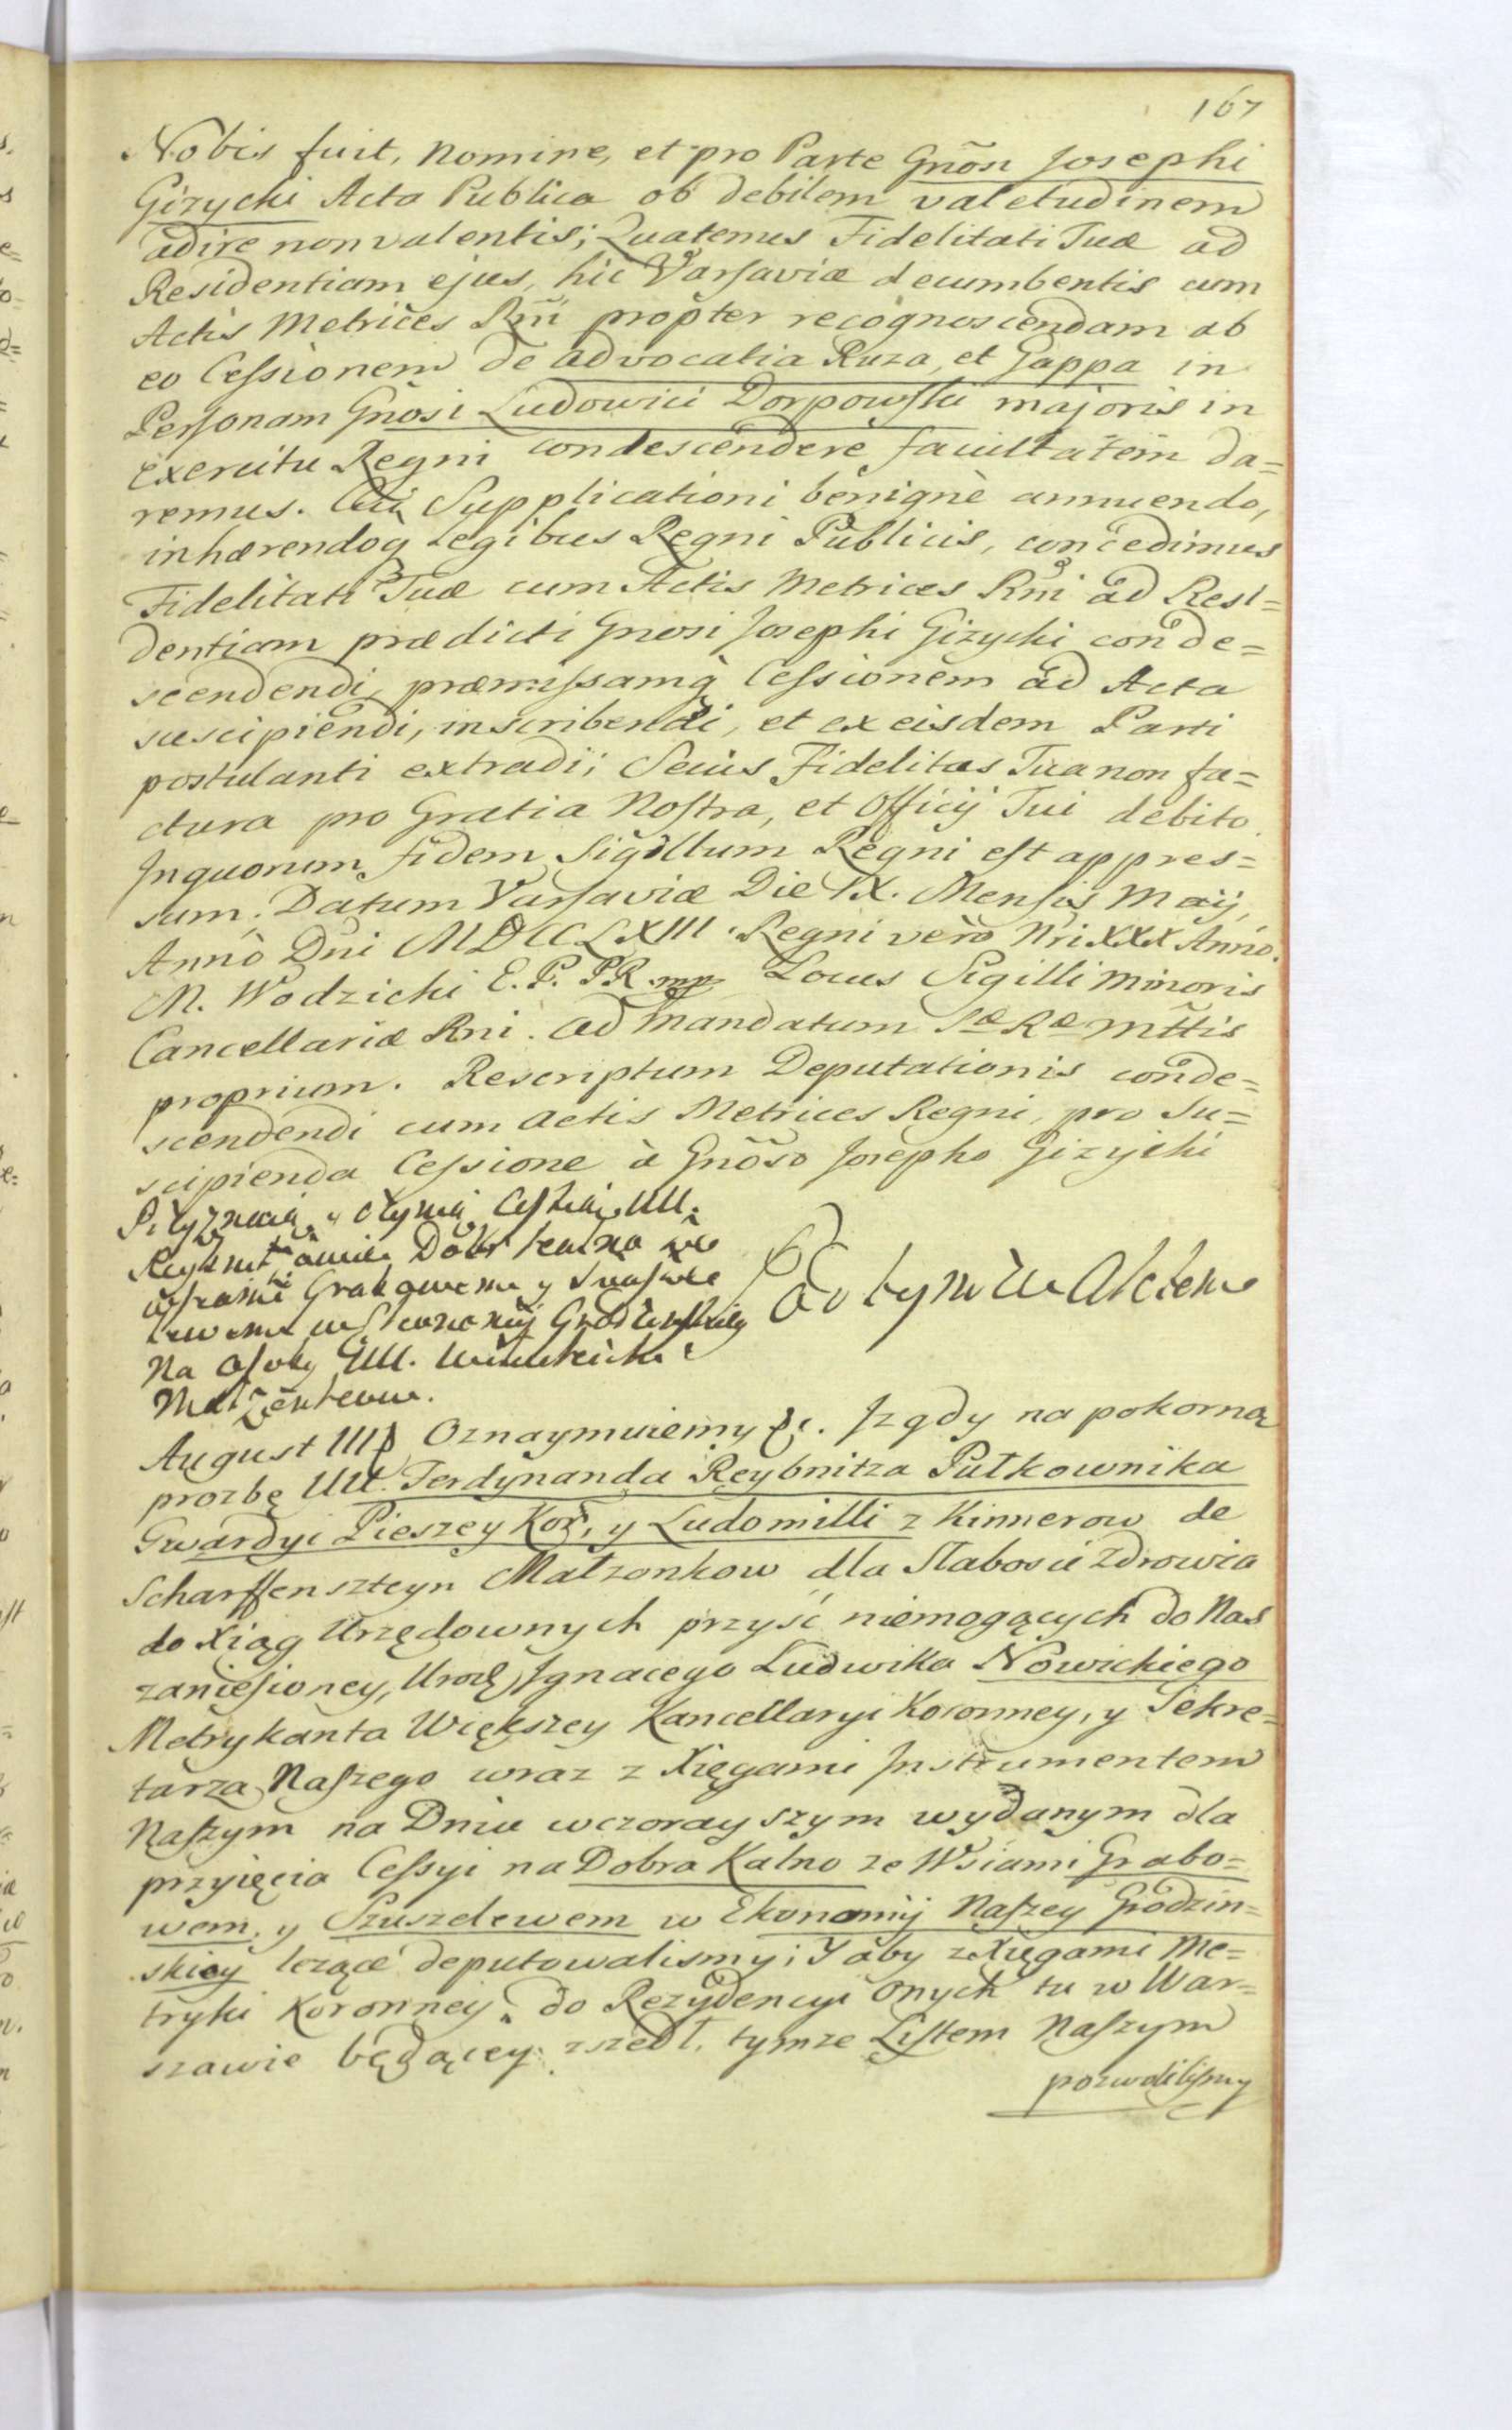 167
Nobis fuit, nomine, et pro Parte Gnõsi Josephi
Gizycki Acta Publica ob debilem valetudinem
adire non valentis; Quatenus Fidelitati Tuæ ad
Residentiam ejus, hic Varsaviæ decumbentis cum
Actis Metrices Rñi propter recognoscendam ab
eo Cessionem de advocatia Ruza, et Gappa in
Personam Gnosi Ludowici Dorpowski majoris in
Exercitu Regni condescendere facultatem da=
remus. Cui Supplicationi benignè annuendo,
inhærendoq Legibus Regni Publicis, concedimus
Fidelitati Tuæ cum Actis Metrices Rni ad Resi=
dentiam prædicti Gnosi Josephi Gizycki conde=
scendendi, præmissamq Cessionem ad Acta
suscipiendi, inscribendi, et ex eisdem Parti
postulanti extradii; Secùs Fidelitas Tua non fa=
ctura pro Gratia Nostra, et Officij Tui debito.
Inquorum fidem Sigillum Regni est appres=
sum. Datum Varsaviæ Die IX. Mensis Maij,
Anno Dni MDCCLXIII. Regni verò Nri XXX Anno.
M. Wodzicki E. P. PR. mp Locus Sigilli minoris
Cancellariæ Rni. Ad Mandatum Sæ Ræ Mttis
proprium. Rescriptum Deputationis conde=
scendendi cum Actis Metrices Regni, pro Su=
scipienda Cessione à Gnõso Josepho Gizycki
Cessiei UU.
Dobr Kalna
Grabowem y
Grodzinskiey
Na Osoby UU.
Małżenkow.
Actum in Actem
August III Oznaymuiemy &c. Iz gdy na pokorną
prozbę UU. Ferdynanda Reybnitza Pułkownika
Gwardyi Pieszey Kor, y Ludomilli z Kinnerow de
Scharffensteyn Małzonkow dla Słabosci Zdrowia
do Xiąg Urzędownych przyść niemogących do Nas
zaniesioney, Urodz Ignacego Ludwika Nowickiego
Metrykanta Większey Kancellaryi Koronney, y Sekre=
tarza Naszego wraz z Xięgami Instrumentem
Naszym na Dniu wczorayszym wydanym dla
przyięcia Cessyi na Dobra Kalno ze Wsiami Grabo=
wem, y Szuszelewem w Ekonomij Naszey Grodzin=
skiey lezące deputowalismy; Y aby z Xięgami Me=
tryki Koronney do Rezydencyi Onych tu w War=
szawie będącey zszedł, tymze Listem Naszym
pozwolilismy